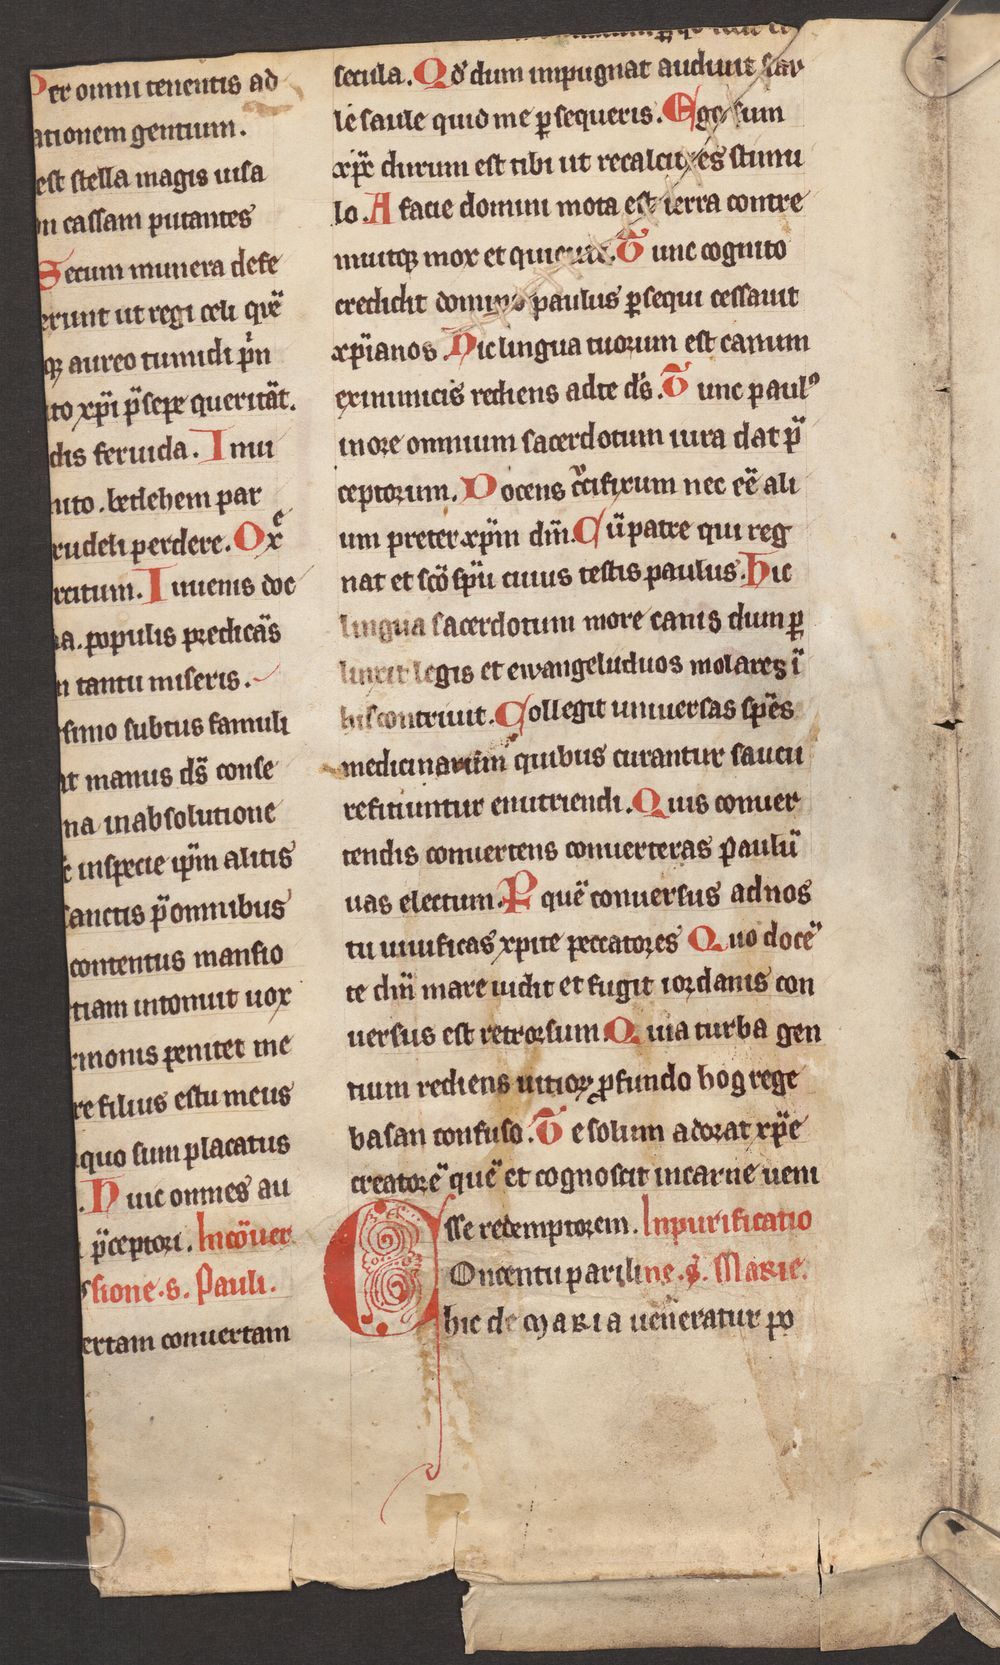 Per omni tenentis ad
ationem gentium.
est stella magis uisa
on cassam putantes
Secum munera defe
erunt ut regi celi que̅
qꝫ aureo tumidi p̅n
ito xp̅i p̅sepe querita̅t.
dis feruida. Imu
nito. betlehem par
rudeli perdere. Oxͤ
rcitum. Iuuenis doc
na. populis predica̅s
n tantu miseris.
simo subtus famuli
at manus ds̅ conse
na in absolutione
inspecie ip̅m alitis
sanctis p̅ omnibus
contentus mansio
tiam intonuit uox
rmonis penitet me
re filius es tu meus
quo sum placatus
. Huic omnes au
p̅ceptori. Inco̅uer
sione .s. Pauli.
ertam conuertam
secula. Qd̅ dum impugnat audiuit sau
le saule quid me ꝑsequeris. Ego sum
xp̅c durum est tibi ut recalcitres stimu
lo. A facie domini mota est terra contre
muitqꝫ mox et quieuit. Tunc cognito
credidit domino paulus ꝑsequi cessauit
xp̅ianos. Hic lingua tuorum est canum
ex inimicis rediens ad te ds̅. Tunc paulꝰ
in ore omnium sacerdotum iura dat p̅
ceptorum. Docens c̅cifixum nec ee̅ ali
um preter xp̅m dm̅. Cu̅ patre qui reg
nat et sc̅o sp̅u cuius testis paulus. Hic
lingua sacerdotum more canis dum ꝑ
linxit legis et ewangelii duos molares i̅
his contriuit. Collegit uniuersas spe̅s
medicinarum quibus curantur saucii
reficiuntur enutriendi. Quis conuer
tendis conuertens conuerteras paulu̅
uas electum. P que̅ conuersus ad nos
tu uiuificas xp̅ite peccatores Quo doce̅
te dm̅ mare uidit et fugit iordanis con
uersus est retrorsum. Quia turba gen
tium rediens uitioꝝ ꝓfundo hog rege
basan confuso. Te solum adorat xp̅e
creatore̅ que̅ et cognoscit in carne ueni
sse redemptorem. In purificatio
Concentu parili ne .s. Marie.
hic de MARIA ueneratur po